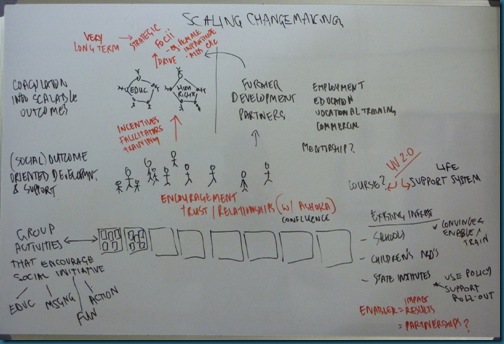 SCALING CHANGEMAKING
VERY
LONG TERM
STRATEGIC
FOCII
DRIVE
COAGULATION
INTO SCALABLE
OUTCOMES
EDUC
HUM
RIGHTS
FURTHER
DEVELOPMENT
PARTNERS
EMPLOYMENT
EDUCATION
VOCATIONAL TRAINING
COMMERCIAL
MENTORSHIP?
INCENTIVES
FACILITATORS
TRAINING
(SOCIAL) OUTCOME
ORIENTED DEVELOPMENT
& SUPPORT
W2.0
COURSE?
LIFE
SUPPORT SYSTEM
ENCOURAGEMENT
TRUST / RELATIONSHIPS (W/ ASHOKA)
CONFLUENCE
GROUP
ACTIVITIES
THAT ENCOURAGE
SOCIAL INITIATIVE
EDUC
MSGNG
FUN
ACTION
EXISTING
- SCHOOLS
CONVINCE
ENABLE /
TRAIN
- CHILDREN'S NGO'S
- STATE INSTITUTES
USE POLICY
SUPPORT
ROLL-OUT
IMPACT
ENABLER = RESULTS
= PARTNERSHIPS?